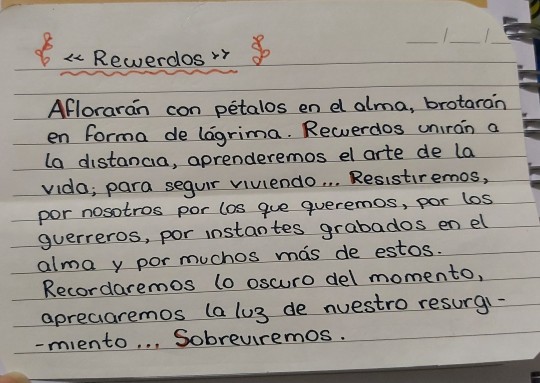 « Recuerdos »
Aflorarán con pétalos en el alma, brotarán
en forma de lágrima. Recuerdos unirán a
la distancia, aprenderemos el arte de la
vida; para seguir viviendo... Resistiremos,
por nosotros por los que queremos, por los
guerreros, por instantes grabados en el
alma y por muchos más de estos.
Recordaremos lo oscuro del momento,
apreciaremos la luz de nuestro resurgi-
-miento ... Sobreviremos.